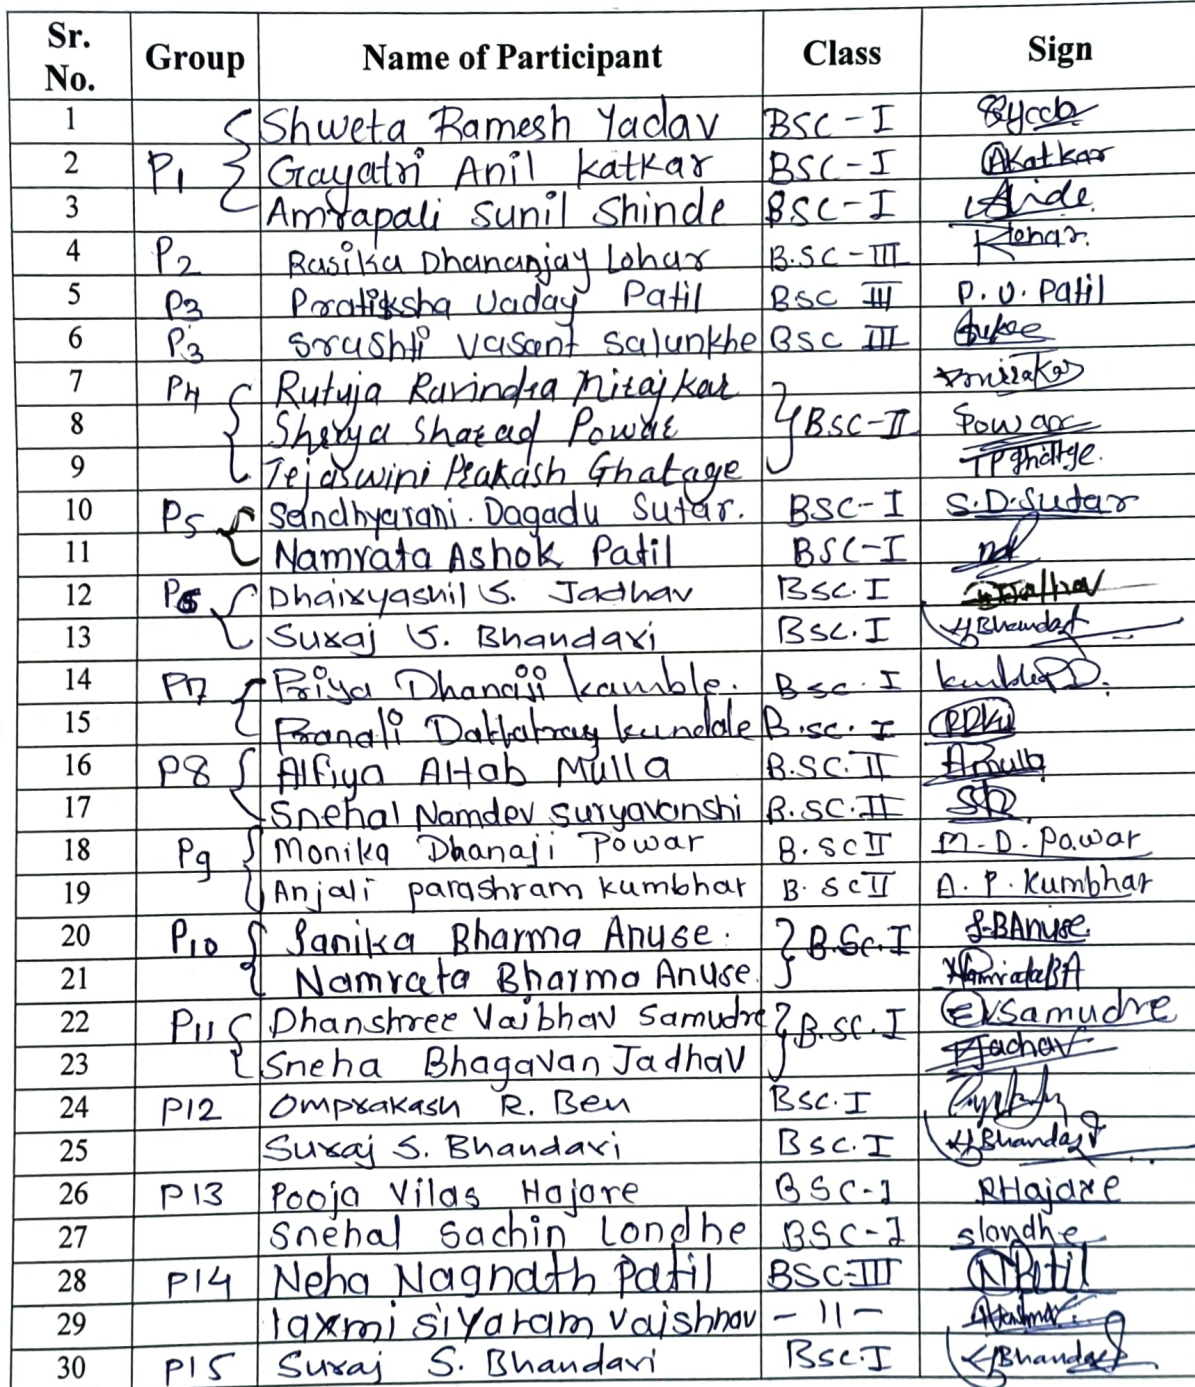 Sr. No. Group Name of Participant Class Sign
1 Shweta Ramesh Yadav BSC-I
2 P1 Gayatri Anil Katkar BSC-I AKatkar
3 Amrapali Sunil Shinde BSC-I
4 P2 Rasika Dhananjay Lohar B.SC-III
5 P3 Pratiksha Uaday Patil BSC III P.U.Patil
6 P3 Srushti Vasant Salunkhe BSC III
7 P4 Rutuja Ravindra Mirajkar
8 Sharad Powar BSC-II Powar
9 Tejaswini Prakash Ghatage TPGhatge.
10 P5 Sandhyarani. Dagadu Sutar. BSC-I S.D.Sutar
11 Namrata Ashok Patil BSC-I
12 P6 Dhairyashil S. Jadhav BSC.I
13 Suraj S. Bhandari BSC.I Bhandari
14 P7 Priya Dhanaji Kamble. BSC.I
15 Pranali Dattatray Kundale B.SC.I
16 P8 Alfiya Altab Mulla B.SC.II AMulla
17 Snehal Namdev Suryavanshi B.SC.II
18 P9 Monika Dhanaji Powar B.SC II M.D.Pawar
19 Anjali parashram kumbhar B.SC II A.P.Kumbhar
20 P10 Sanika Bharma Anuse. B.Sc.I S.BAnuse.
21 Namrata Bharma Anuse. NamrataBA
22 P11 Dhanshree Vaibhav Samudre B.SC.I Samudre
23 Sneha Bhagavan Jadhav
24 P12 Omprakash R. Ben BSC.I
25 Suraj S. Bhandari BSC.I Bhandari
26 P13 Pooja Vilas Hajare BSC-I PHajare
27 Snehal Sachin Londhe BSC-I slondhe
28 P14 Neha Nagnath Patil BSC-III NPatil
29 laxmi siyaram vaishnav -11-
30 P15 Suraj S. Bhandari BSC.I Bhandari